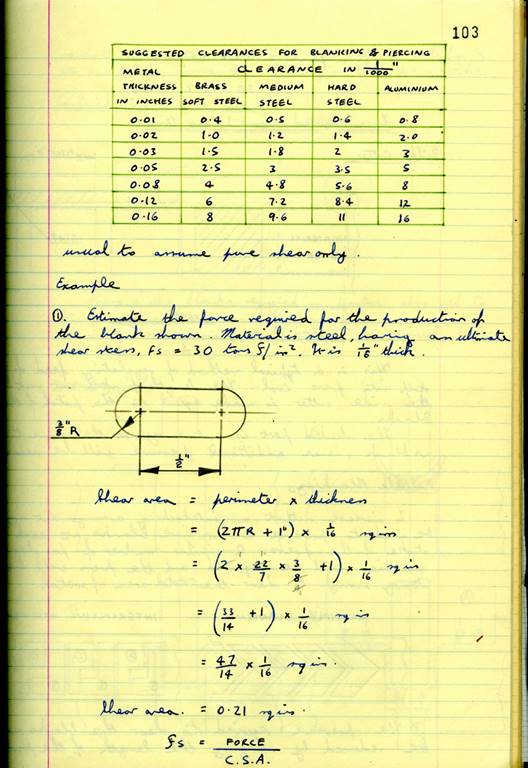 103
SUGGESTED CLEARANCES FOR BLANKING & PIERCING
METAL THICKNESS IN INCHES CLEARANCE IN 1/1000"
BRASS SOFT STEEL MEDIUM STEEL HARD STEEL ALUMINIUM
0.01 0.4 0.5 0.6 0.8
0.02 1.0 1.2 1.4 2.0
0.03 1.5 1.8 2 3
0.05 2.5 3 3.5 5
0.08 4 4.8 5.6 8
0.12 6 7.2 8.4 12
0.16 8 9.6 11 16
usual to assume pure shear only.
Example
①. Estimate the force required for the production of
the blank shown. Material is steel, having an ultimate
shear stress, fs = 30 tons f/in². It is 1/16" thick.
3/8" R
1/2"
Shear area = perimeter × thickness
= (2πR + 1") × 1/16 sq ins
= (2 × 22/7 × 3/8 + 1) × 1/16 sq in
= (33/14 + 1) × 1/16 sq in
= 47/14 × 1/16 sq ins.
Shear area. = 0.21 sq ins.
fs = FORCE / C.S.A.